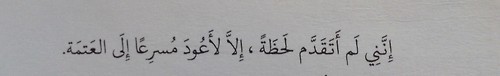 إِنَّنِي لَم أَتَقَدَّم لَحظَةً ، إِلاَّ لأَعُودَ مُسرِعًا إِلَى العَتمَة.